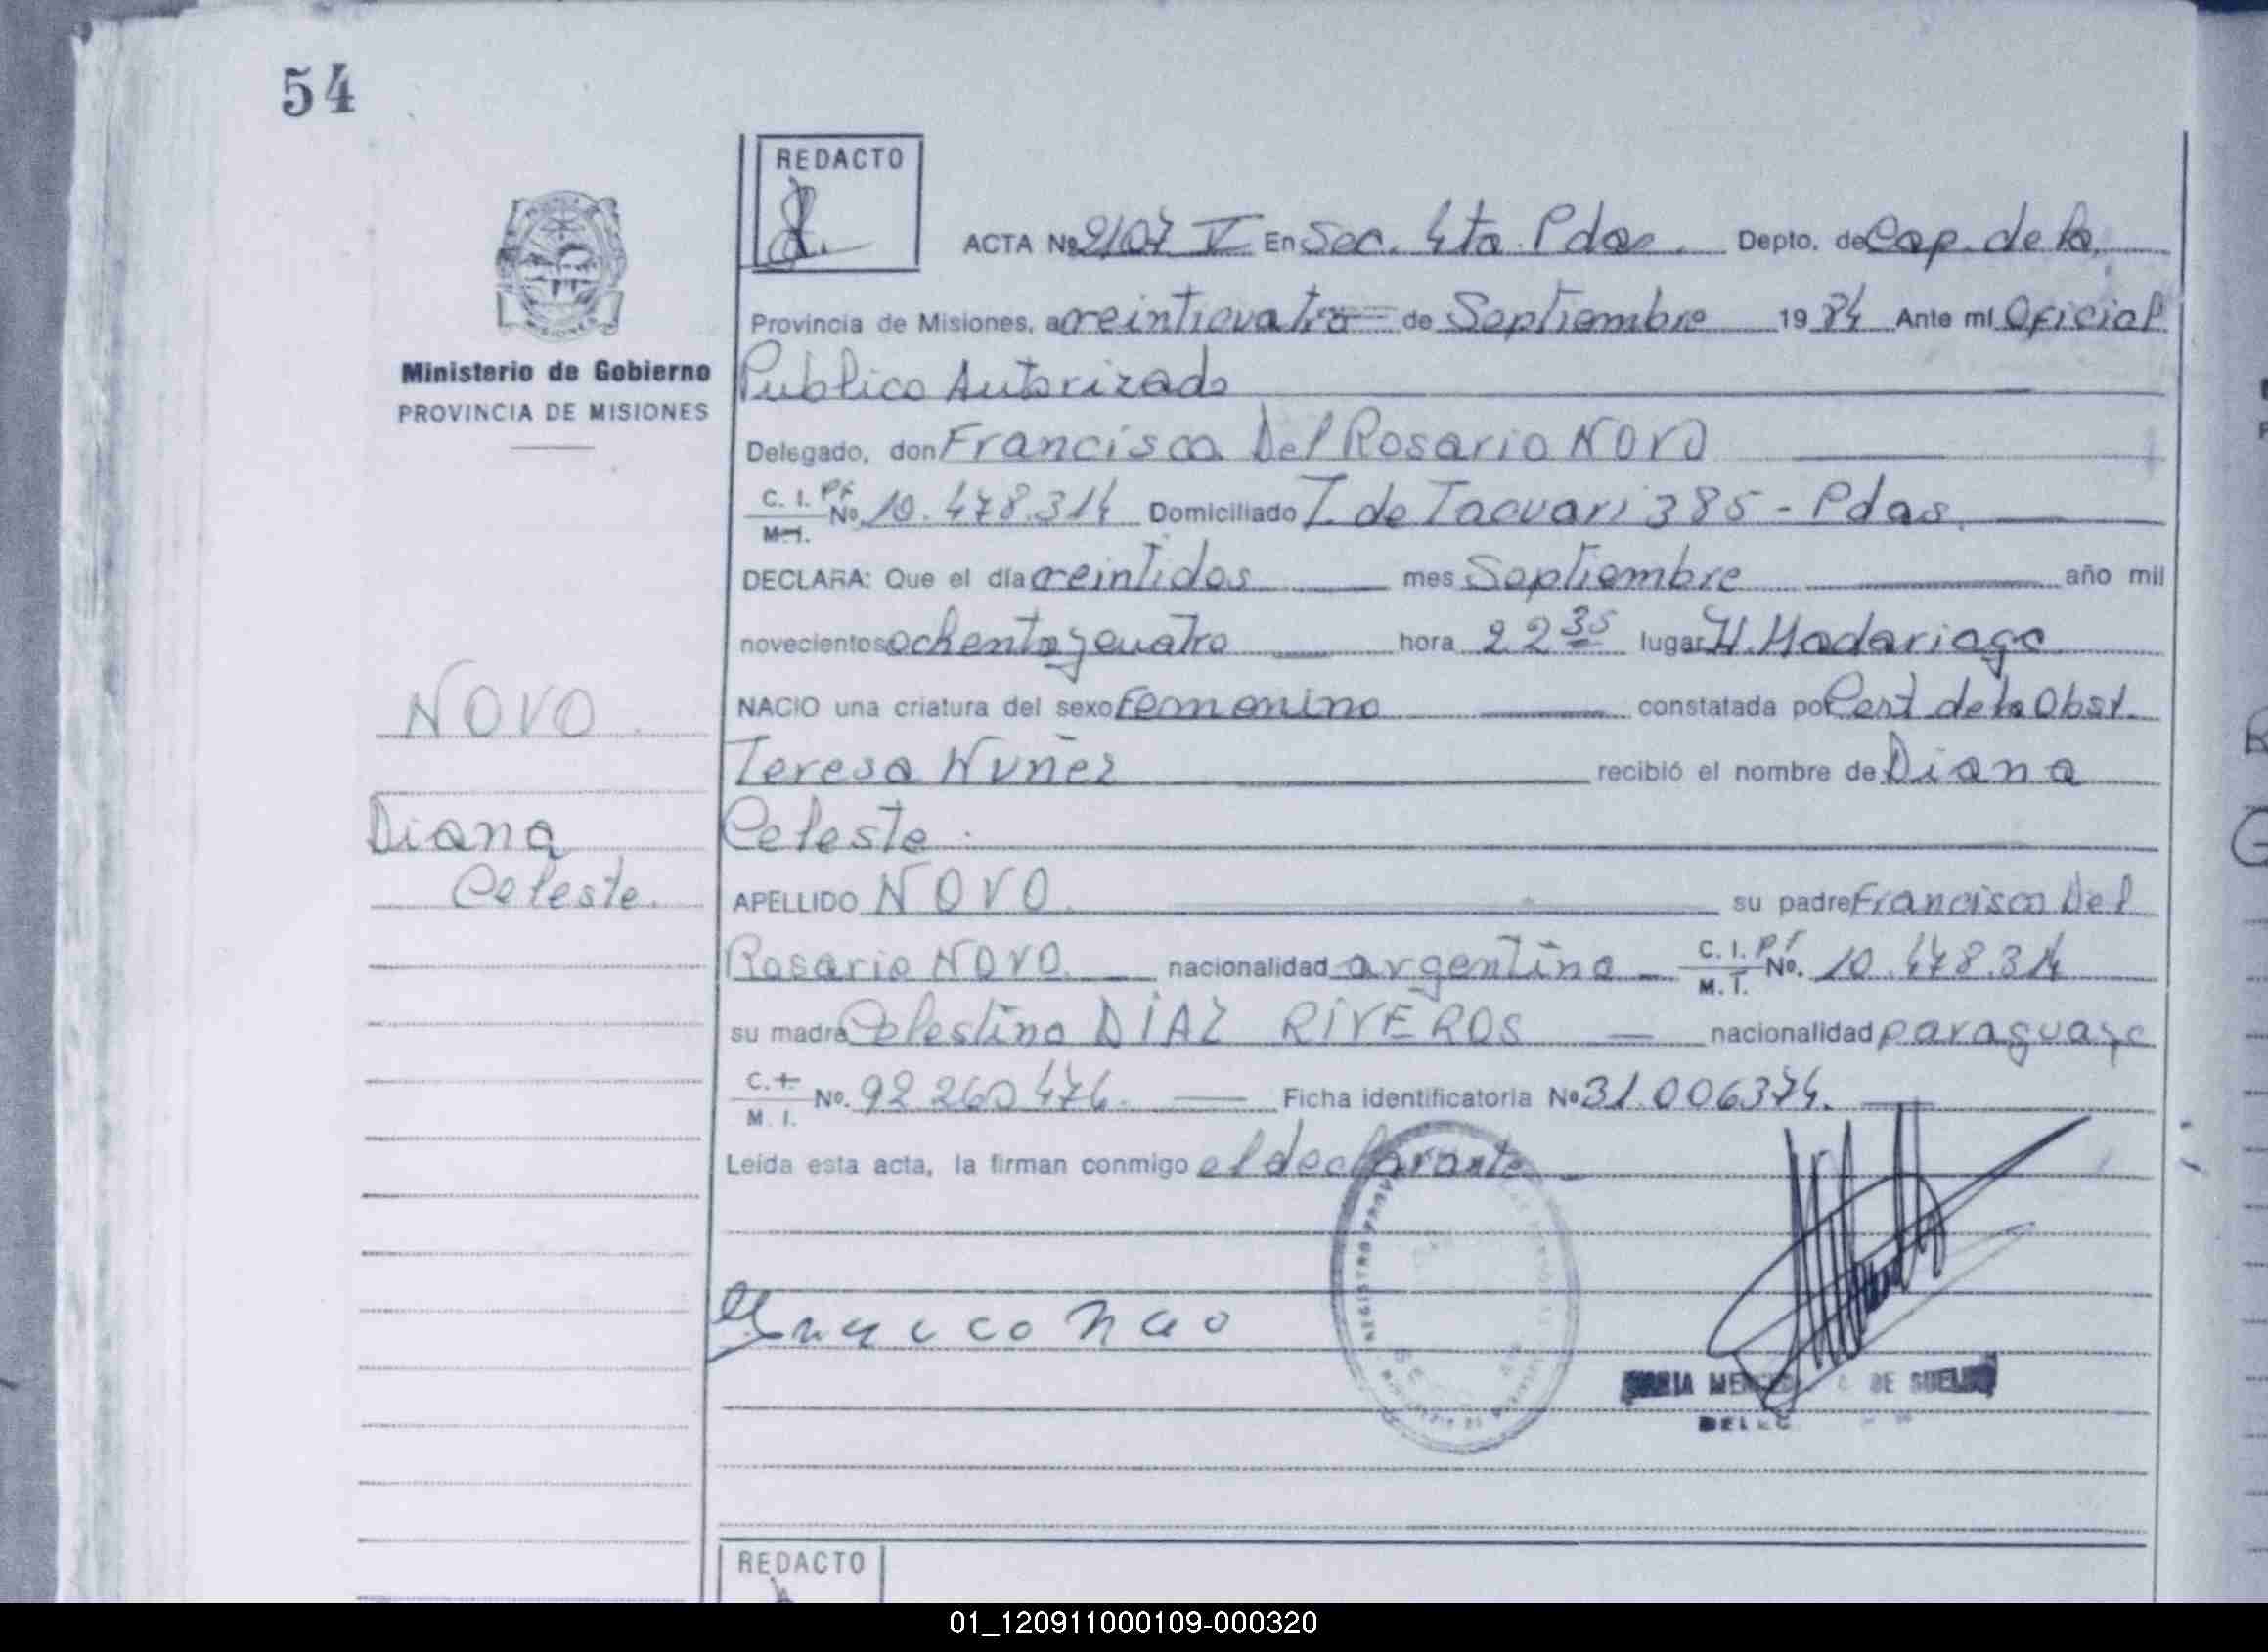 54
REDACTO
ACTA Nº 2107 V En Sec. 4ta. Pdas. Depto. de Cap. de la
Provincia de Misiones, a veinticuatro de Septiembre 1984 Ante mi Oficial
Publico Autorizado
Ministerio de Gobierno
PROVINCIA DE MISIONES
Delegado, don Francisco Del Rosario NOVO
C. I. M. I. No. 10.478.314 Domiciliado T. de Tacuari 385 - Pdas.
DECLARA: Que el día veintidos mes Septiembre año mil
novecientos ochenta y cuatro hora 22 35 lugar H. Madariaga
NACIO una criatura del sexo Femenino constatada por Cert de la Obst.
Teresa Nuñez recibió el nombre de Diana
Celeste.
NOVO
Diana
Celeste.
APELLIDO NOVO su padre Francisco Del
Rosario NOVO. nacionalidad argentina C. I. M. I. No. 10.478.314
su madre Celestina DIAZ RIVEROS nacionalidad paraguaya
C. I. M. I. No. 92 260 476. Ficha identificatoria Nº 31.006374.
Leída esta acta, la firman conmigo el declarante
MARIA DE
REDACTO
01_120911000109-000320